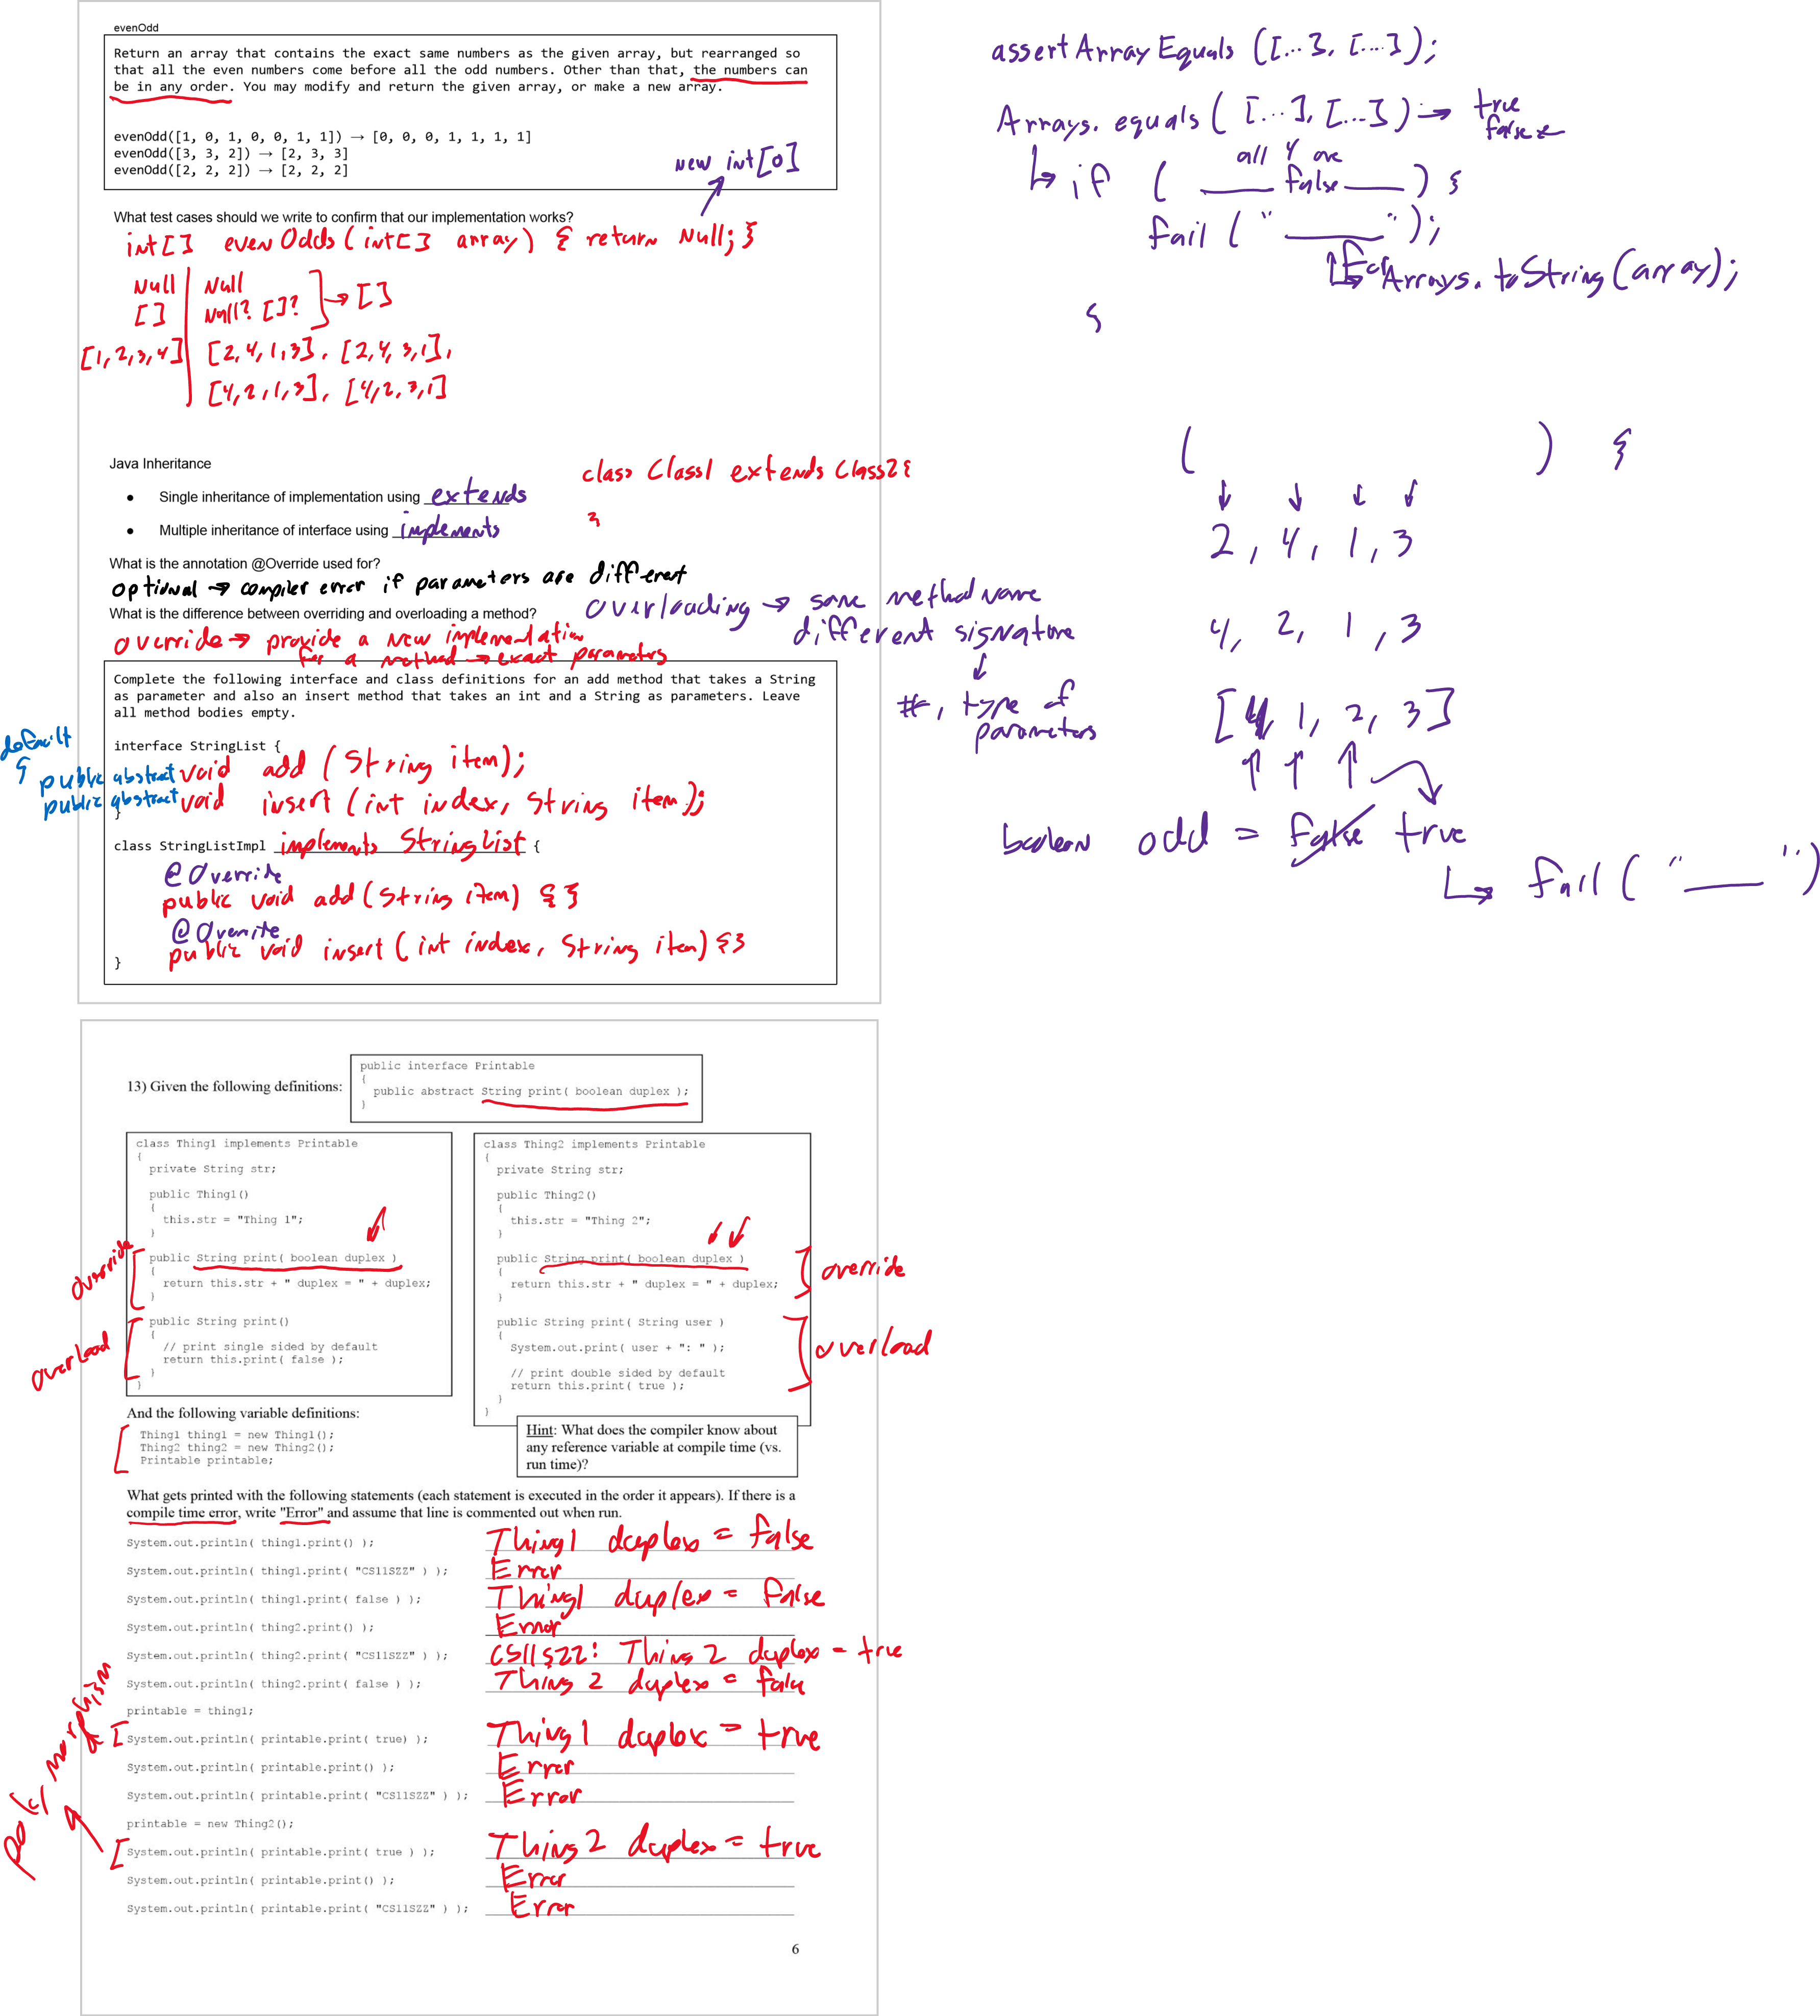 evenOdd
Return an array that contains the exact same numbers as the given array, but rearranged so
that all the even numbers come before all the odd numbers. Other than that, the numbers can
be in any order. You may modify and return the given array, or make a new array.
evenOdd([1, 0, 1, 0, 0, 1, 1]) → [0, 0, 0, 1, 1, 1, 1]
evenOdd([3, 3, 2]) → [2, 3, 3]
evenOdd([2, 2, 2]) → [2, 2, 2]
new int[0]
What test cases should we write to confirm that our implementation works?
int[] evenOdds(int[] array) { return Null; }
Null | Null
[] | Null? []? → []
[1,2,3,4] | [2,4,1,3], [2,4,3,1],
[4,2,1,3], [4,2,3,1]
assertArrayEquals([...], [...]);
Arrays.equals([...], [...]) → true
false
all 4 are
↳ if ( false ) {
fail (" ");
↳ Arrays.toString(array);
}
( ) {
2, 4, 1, 3
4, 2, 1, 3
[4, 1, 2, 3]
boolean odd = false true
↳ fail (" ")
Java Inheritance
• Single inheritance of implementation using extends
• Multiple inheritance of interface using implements
class Class1 extends Class2 {
}
What is the annotation @Override used for?
optional → compiler error if parameters are different
What is the difference between overriding and overloading a method?
override → provide a new implementation
for a method → exact parameters
overloading → same method name
different signature
#, type of
parameters
Complete the following interface and class definitions for an add method that takes a String
as parameter and also an insert method that takes an int and a String as parameters. Leave
all method bodies empty.
default
interface StringList {
public abstract void add (String item);
public abstract void insert (int index, String item);
}
class StringListImpl implements StringList {
@Override
public void add (String item) { }
@Override
public void insert (int index, String item) { }
}
13) Given the following definitions:
public interface Printable
{
public abstract String print( boolean duplex );
}
class Thing1 implements Printable
{
private String str;
public Thing1()
{
this.str = "Thing 1";
}
public String print( boolean duplex )
{
return this.str + " duplex = " + duplex;
}
public String print()
{
// print single sided by default
return this.print( false );
}
}
override
overload
class Thing2 implements Printable
{
private String str;
public Thing2()
{
this.str = "Thing 2";
}
public String print( boolean duplex )
{
return this.str + " duplex = " + duplex;
}
public String print( String user )
{
System.out.print( user + ": " );
// print double sided by default
return this.print( true );
}
}
override
overload
And the following variable definitions:
Thing1 thing1 = new Thing1();
Thing2 thing2 = new Thing2();
Printable printable;
Hint: What does the compiler know about
any reference variable at compile time (vs.
run time)?
What gets printed with the following statements (each statement is executed in the order it appears). If there is a
compile time error, write "Error" and assume that line is commented out when run.
System.out.println( thing1.print() ); Thing1 duplex = false
System.out.println( thing1.print( "CS11SZZ" ) ); Error
System.out.println( thing1.print( false ) ); Thing1 duplex = false
System.out.println( thing2.print() ); Error
System.out.println( thing2.print( "CS11SZZ" ) ); CS11SZZ: Thing 2 duplex = true
System.out.println( thing2.print( false ) ); Thing 2 duplex = false
printable = thing1;
System.out.println( printable.print( true) ); Thing1 duplex = true
System.out.println( printable.print() ); Error
System.out.println( printable.print( "CS11SZZ" ) ); Error
printable = new Thing2();
System.out.println( printable.print( true ) ); Thing 2 duplex = true
System.out.println( printable.print() ); Error
System.out.println( printable.print( "CS11SZZ" ) ); Error
polymorphism
6